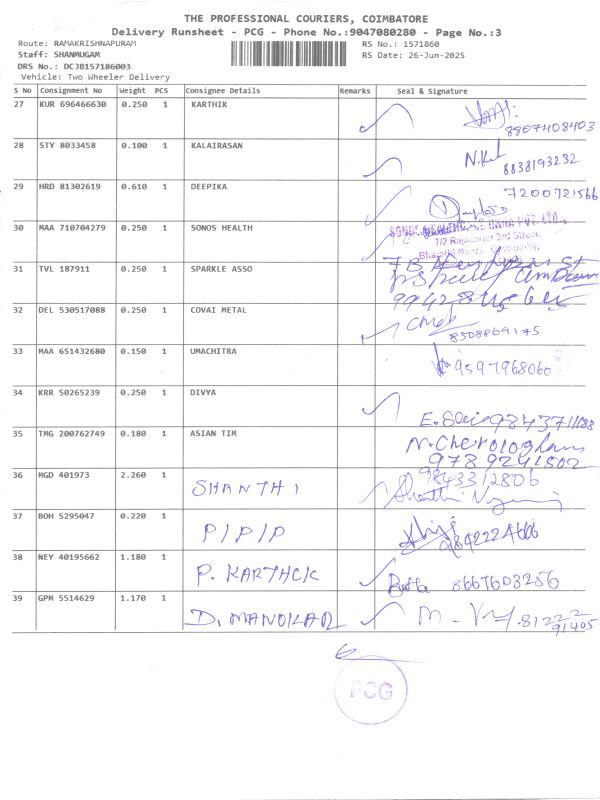 THE PROFESSIONAL COURIERS, COIMBATORE
Delivery Runsheet - PCG - Phone No.:9047080280 - Page No.:3
Route: RAMAKRISHNAPURAM RS No.: 1571860
Staff: SHANMUGAM RS Date: 26-Jun-2025
DRS No.: DCJB157186003
Vehicle: Two Wheeler Delivery
S No Consignment No Weight PCS Consignee Details Remarks Seal & Signature
27 KUR 696466630 0.250 1 KARTHIK
8807408403
28 STY 8033458 0.100 1 KALAIRASAN
8838193232
29 HRD 81302619 0.610 1 DEEPIKA 7200721566
30 MAA 710704279 0.250 1 SONOS HEALTH
7/2 Rajanagar 3rd Street,
31 TVL 187911 0.250 1 SPARKLE ASSO
32 DEL 530517088 0.250 1 COVAI METAL
8508869175
33 MAA 651432680 0.150 1 UMACHITRA
9597968060
34 KRR 50265239 0.250 1 DIVYA
35 TMG 200762749 0.180 1 ASIAN TIM
9789241502
36 MGD 401973 2.260 1 SHANTHI 9843312806
37 BOH 5295047 0.220 1 P/P/P
38 NEY 40195662 1.180 1 P. KARTHCK 8667603256
39 GPM 5514629 1.170 1 D. MANOKAR
PCG